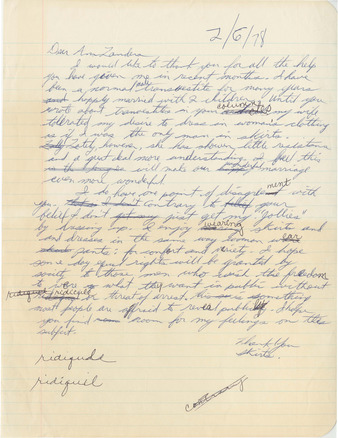 2/6/78
Dear Ann Landers
I would like to that you for all the help
you have given me in recent months. I have
ban a normal male transvestite for many years
happly married with 2 children. Until you
wrote about transvestites in your my wife
tollerated my desire to dress in women's clothing
as if I was the only man in skirts.
Late, however, she has shown little resistance
and a great deal more understanding. I feel this
will make our marriage
even more wonderful
I do have one point of disagreement with
you. I don't contrary to your
belief I don't just get my "Jollies"
by dressing up. I enjoy wearing skirts and
and dresses in the same way women wear
pants: for comfort and variety. I hope
some day equal rights will be granted by
society to those men who seek the freedom
to wear what they want in public without
ridicule or threat of arrest, something
most people are afraid to reveal publicly. I hope
you find room for my feelings on this
subject.
Thank You
Skirts
ridigude
ridiquil
contrary